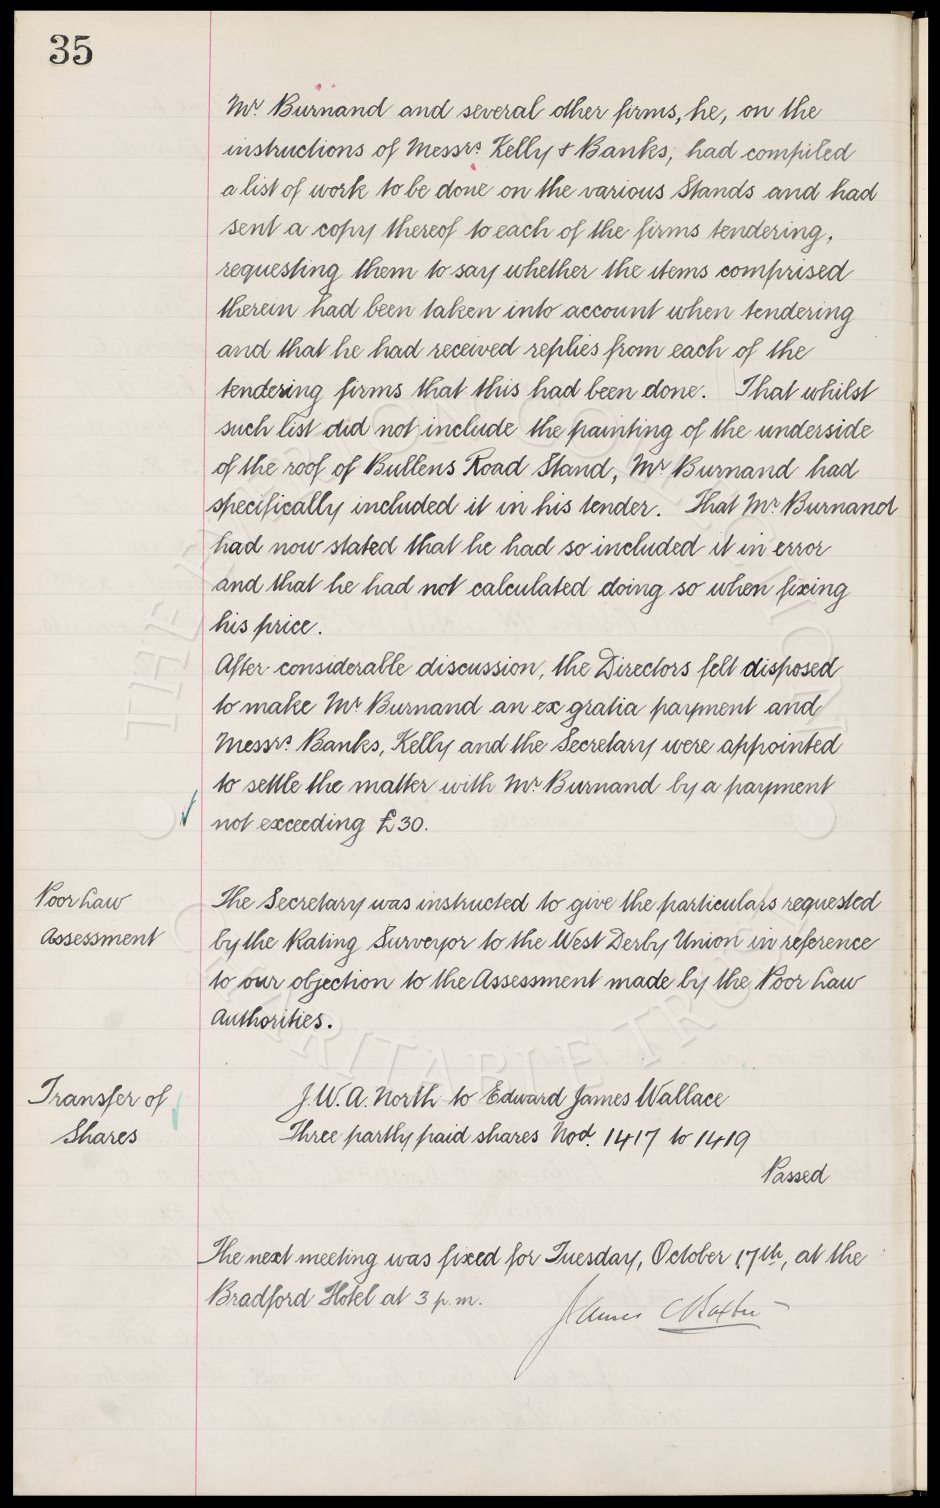 35
Mr. Burnand and several other firms, he, on the
instructions of Messrs Kelly & Banks, had compiled
a list of work to be done on the various Stands and had
sent a copy thereof to each of the firms tendering,
requesting them to say whether the items comprised
therein had been taken into account when tendering
and that he had received replies from each of the
tendering firms that this had been done. That whilst
such list did not include the painting of the underside
of the roof of Bullens Road Stand, Mr Burnand had
specifically included it in his tender. That Mr. Burnand
had now stated that he had so included it in error
and that he had not calculated doing so when fixing
his price.
After considerable discussion, the Directors felt disposed
to make Mr Burnand an ex gratia payment and
Messrs. Banks, Kelly and the Secretary were appointed
to settle the matter with Mr. Burnand by a payment
not exceeding £30.
Poor Law
Assessment
The Secretary was instructed to give the particulars requested
by the Rating Surveyor to the West Derby Union in reference
to our objection to the Assessment made by the Poor Law
Authorities.
Transfer of
Shares
J. W. A. North to Edward James Wallace
Three partly paid shares Nod. 1417 to 1419
Passed
The next meeting was fixed for Tuesday, October 17th, at the
Bradford Hotel at 3 p.m.
James Baxter
THE EVERTON COLLECTION
CHARITABLE TRUST